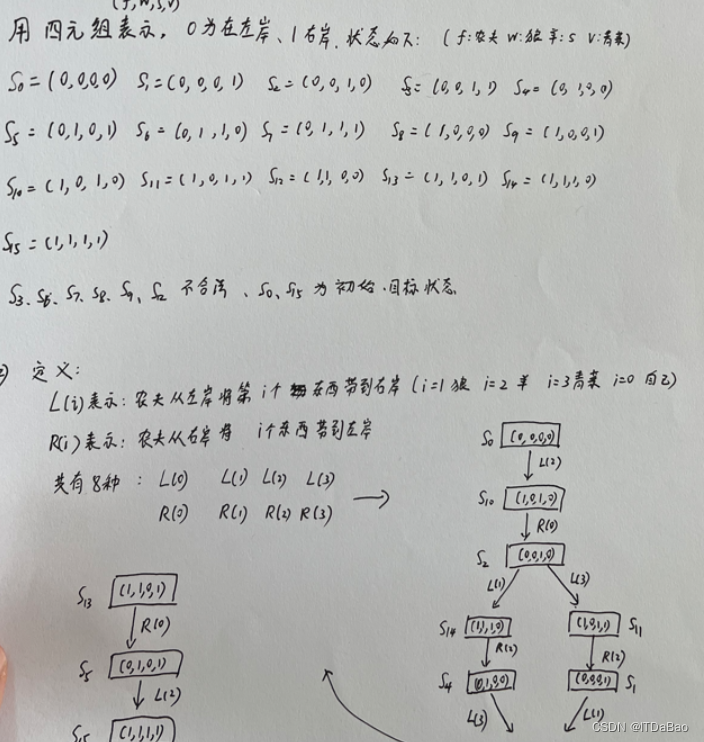 (f,w,s,v)
用四元组表示, 0为在左岸、1右岸. 状态如下: (f:农夫 w:狼 羊:s v:青菜)
S0=(0,0,0,0) S1=(0,0,0,1) S2=(0,0,1,0) S3=(0,0,1,1) S4=(0,1,0,0)
S5=(0,1,0,1) S6=(0,1,1,0) S7=(0,1,1,1) S8=(1,0,0,0) S9=(1,0,0,1)
S10=(1,0,1,0) S11=(1,0,1,1) S12=(1,1,0,0) S13=(1,1,0,1) S14=(1,1,1,0)
S15=(1,1,1,1)
S3、S6、S7、S8、S9、S12 不合法、S0、S15 为初始.目标状态
) 定义:
L(i)表示: 农夫从左岸将第i个东西带到右岸 (i=1 狼 i=2 羊 i=3青菜 i=0 自己)
R(i)表示: 农夫从右岸将 i个东西带到左岸
共有8种: L(0) L(1) L(2) L(3)
R(0) R(1) R(2) R(3)
S0 (0,0,0,0)
L(2)
S10 (1,0,1,0)
R(0)
S2 (0,0,1,0)
L(1) L(3)
S14 (1,1,1,0) (1,0,1,1) S11
R(2) R(2)
S4 (0,1,0,0) (0,0,0,1) S1
L(3) L(1)
S13 (1,1,0,1)
R(0)
S5 (0,1,0,1)
L(2)
S15 (1,1,1,1)
CSDN @ITDaBao